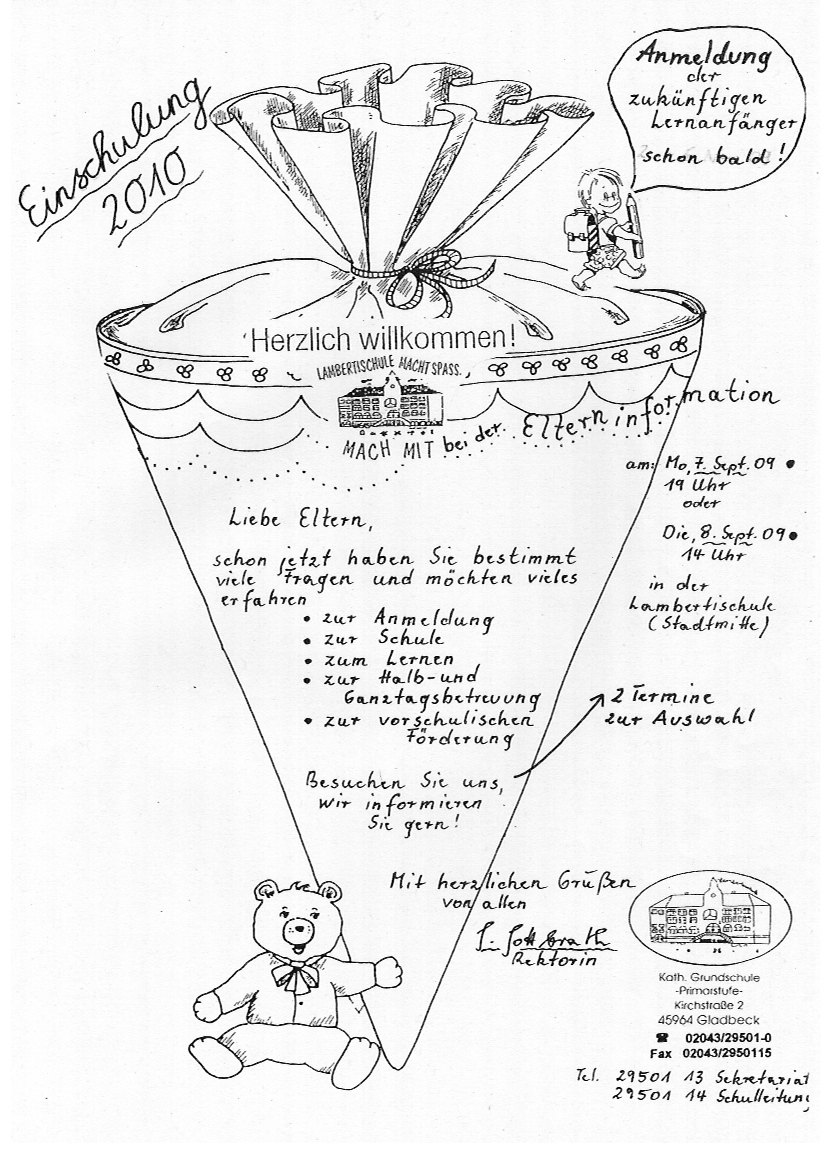 Einschulung
2010
Anmeldung
der
zukünftigen
Lernanfänger
schon bald!
Herzlich willkommen!
LAMBERTISCHULE MACHT SPASS.
MACH MIT bei der Elterninformation
am: Mo, 7. Sept. 09 •
19 Uhr
oder
Die, 8. Sept. 09 •
14 Uhr
in der
Lambertischule
(Stadtmitte)
Liebe Eltern,
schon jetzt haben Sie bestimmt
viele Fragen und möchten vieles
erfahren
• zur Anmeldung
• zur Schule
• zum Lernen
• zur Halb- und
Ganztagsbetreuung
• zur vorschulischen
Förderung
2 Termine
zur Auswahl
Besuchen Sie uns,
wir informieren
Sie gern!
Mit herzlichen Grüßen
von allen
Rektorin
Kath. Grundschule
-Primarstufe-
Kirchstraße 2
45964 Gladbeck
☎ 02043/29501-0
Fax 02043/2950115
Tel. 29501 13 Sekretariat
29501 14 Schulleitung